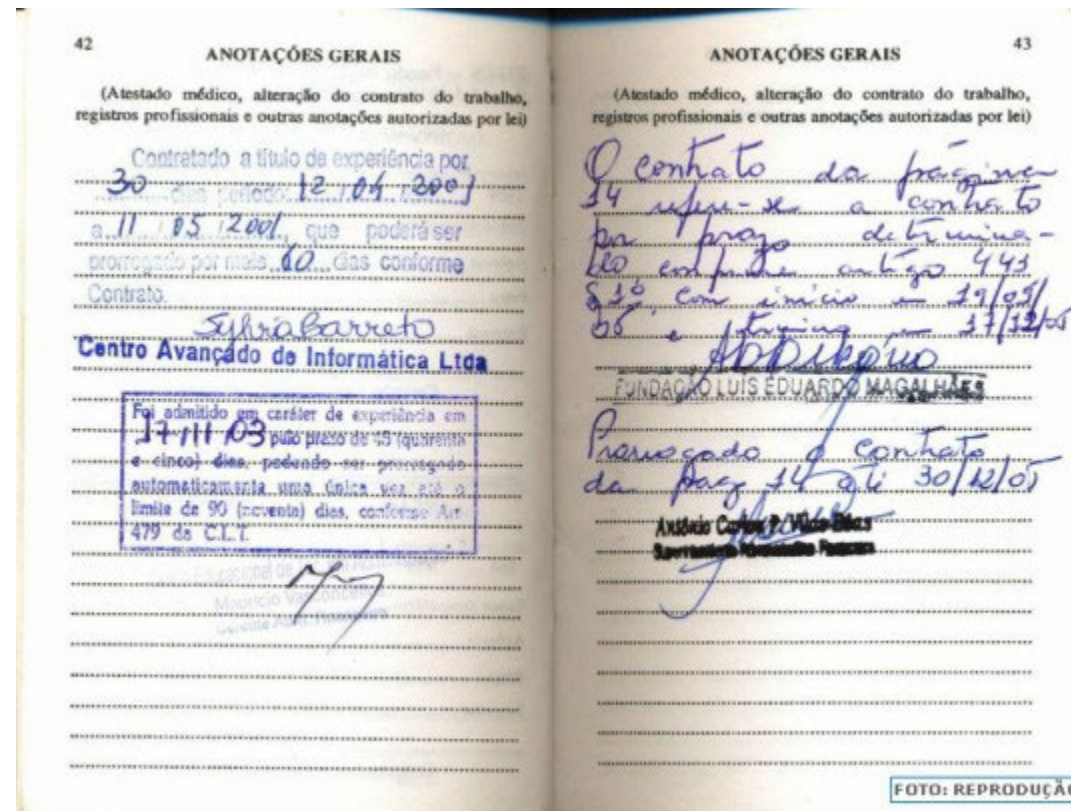 42
ANOTAÇÕES GERAIS
(Atestado médico, alteração do contrato do trabalho,
registros profissionais e outras anotações autorizadas por lei)
Contratado a título de experiência por
30 dias período: 12 / 04 / 2001
a 11 / 05 / 2001, que poderá ser
prorrogado por mais 60 dias conforme
Contrato.
Sylvia Barreto
Centro Avançado de Informática Ltda
Foi admitido em caráter de experiência em
17/11/03 pelo prazo de 45 (quarenta
e cinco) dias, podendo ser prorrogado
automaticamente uma única vez até o
limite de 90 (noventa) dias, conforme Art
479 da C.L.T.
Mauricio Vasconcelos
Gerente Adm. Financeiro
43
ANOTAÇÕES GERAIS
(Atestado médico, alteração do contrato do trabalho,
registros profissionais e outras anotações autorizadas por lei)
O contrato da página
14 refere-se a contrato
por prazo determina-
do, artigo 443
§ 1º, com início em 19/09/
05 e término em 17/12/05
FUNDAÇÃO LUÍS EDUARDO MAGALHÃES
Prorrogado o contrato
da pag 14 até 30/12/05
Antônio Carlos P. Vilas-Bôas
FOTO: REPRODUÇÃO